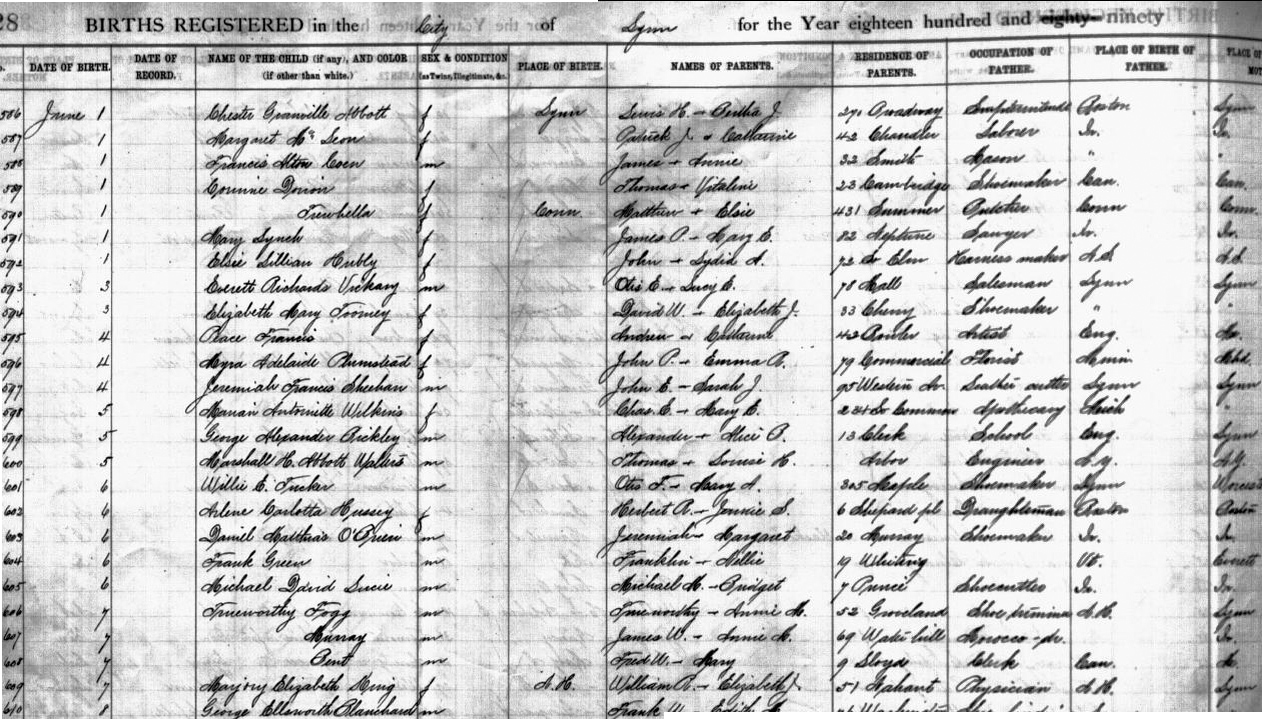 28 BIRTHS REGISTERED in the City of Lynn for the Year eighteen hundred and eighty- ninety
DATE OF BIRTH. DATE OF RECORD. NAME OF THE CHILD (if any), AND COLOR (if other than white.) SEX & CONDITION (as Twins, Illegitimate, &c. PLACE OF BIRTH. NAMES OF PARENTS. RESIDENCE OF PARENTS. OCCUPATION OF FATHER. PLACE OF BIRTH OF FATHER. PLACE OF
586 June 1 Chester Granville Abbott f Lynn Lewis H. - Bertha J. 271 Broadway Boston Lynn
587 1 Margaret Mc Leon f Patrick J. + Catharine 42 Chandler Laborer Ir. Ir.
588 1 Francis Alton Coen m James + Annie 32 Smith Mason " "
589 1 Corinne Dorion f Thomas + Vitaline 23 Cambridge Shoemaker Can. Can.
590 1 Trewhella f Conn. Matthew + Elsie 431 Summer Butcher Conn Conn.
591 1 Mary Lynch f James P. - Mary E. 82 Neptune Sawyer Ir. Ir.
592 1 Elsie Lillian Hubly f John + Lydia A. 72 So Elm Harness maker N.S. N.S.
593 3 Everett Richards Vickary m Otis E. - Lucy E. 78 Mall Salesman Lynn Lynn
594 3 Elizabeth Mary Toomey f David W. - Elizabeth J. 33 Cherry Shoemaker " "
595 4 Race Francis f Andrew + Catharine 43 Bowler Artist Eng.
596 4 Myra Adelaide Plumstead f John P. - Emma R. 79 Commercial Florist
597 4 Jeremiah Francis Sheehan m John E. - Sarah J. 95 Western Av. Leather cutter Lynn Lynn
598 5 Marian Antoinille Wilkins f Chas E. - Mary E. 234 So Common Apothecary Mich "
599 5 George Alexander Brickley m Alexander + Alice B. 13 Clerk School Eng. Lynn
600 5 Marshall H. Abbott Walters m Thomas + Louise H. Arbor Engineer N.Y. N.Y.
601 6 Willie E. Tucker m Otis F. - Mary A. 305 Maple Shoemaker Lynn
602 6 Arlene Carlotta Hussey f Herbert R. - Jennie S. 6 Shepard pl Draughtsman Boston Boston
603 6 Daniel Matthias O'Brien m Jeremiah - Margaret 20 Murray Shoemaker Ir. Ir.
604 6 Frank Green m Franklin - Nellie 19 Whiting Vt. Everett
605 6 Michael David Lucie m Michael H. - Bridget 7 Prince Shoecutter Ir. Ir.
606 7 Trueworthy Fogg m Trueworthy - Annie M. 52 Groveland Shoe trimming N.H. Lynn
607 7 Murray m James W. - Annie L. 69 Morocco dr. Ir.
608 7 Bent m Fred W. - Mary 9 Lloyd Clerk Can.
609 7 Marjory Elizabeth King f N.H. William R. - Elizabeth J. 51 Nahant Physician N.H. Lynn
610 8 George Ellsworth Blanchard m Frank W. Edith